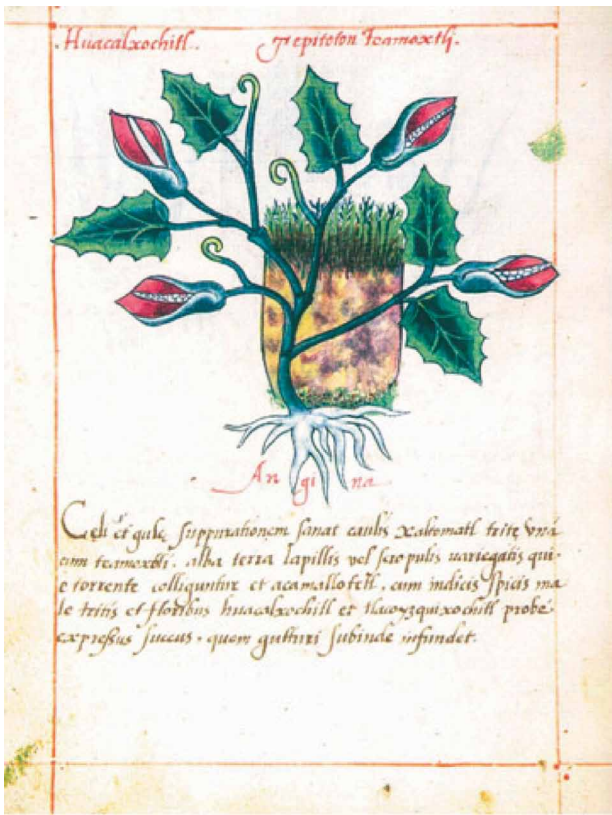 Huacalxochitl. Tepitoton Tcamoxtli.
Angina
Coli et gule suppurationem sanat caulis xaltomatl trite vna
cum tcamoxtli, alba terra lapillis vel scropulis uariegatis qui
e torrente colliguntur et acamallotetl, cum indicis spicis ma
le tritis et floribus huacalxochitl et tlacoyzquixochitl probe
expressus succus, quem gutturi subinde infundet.